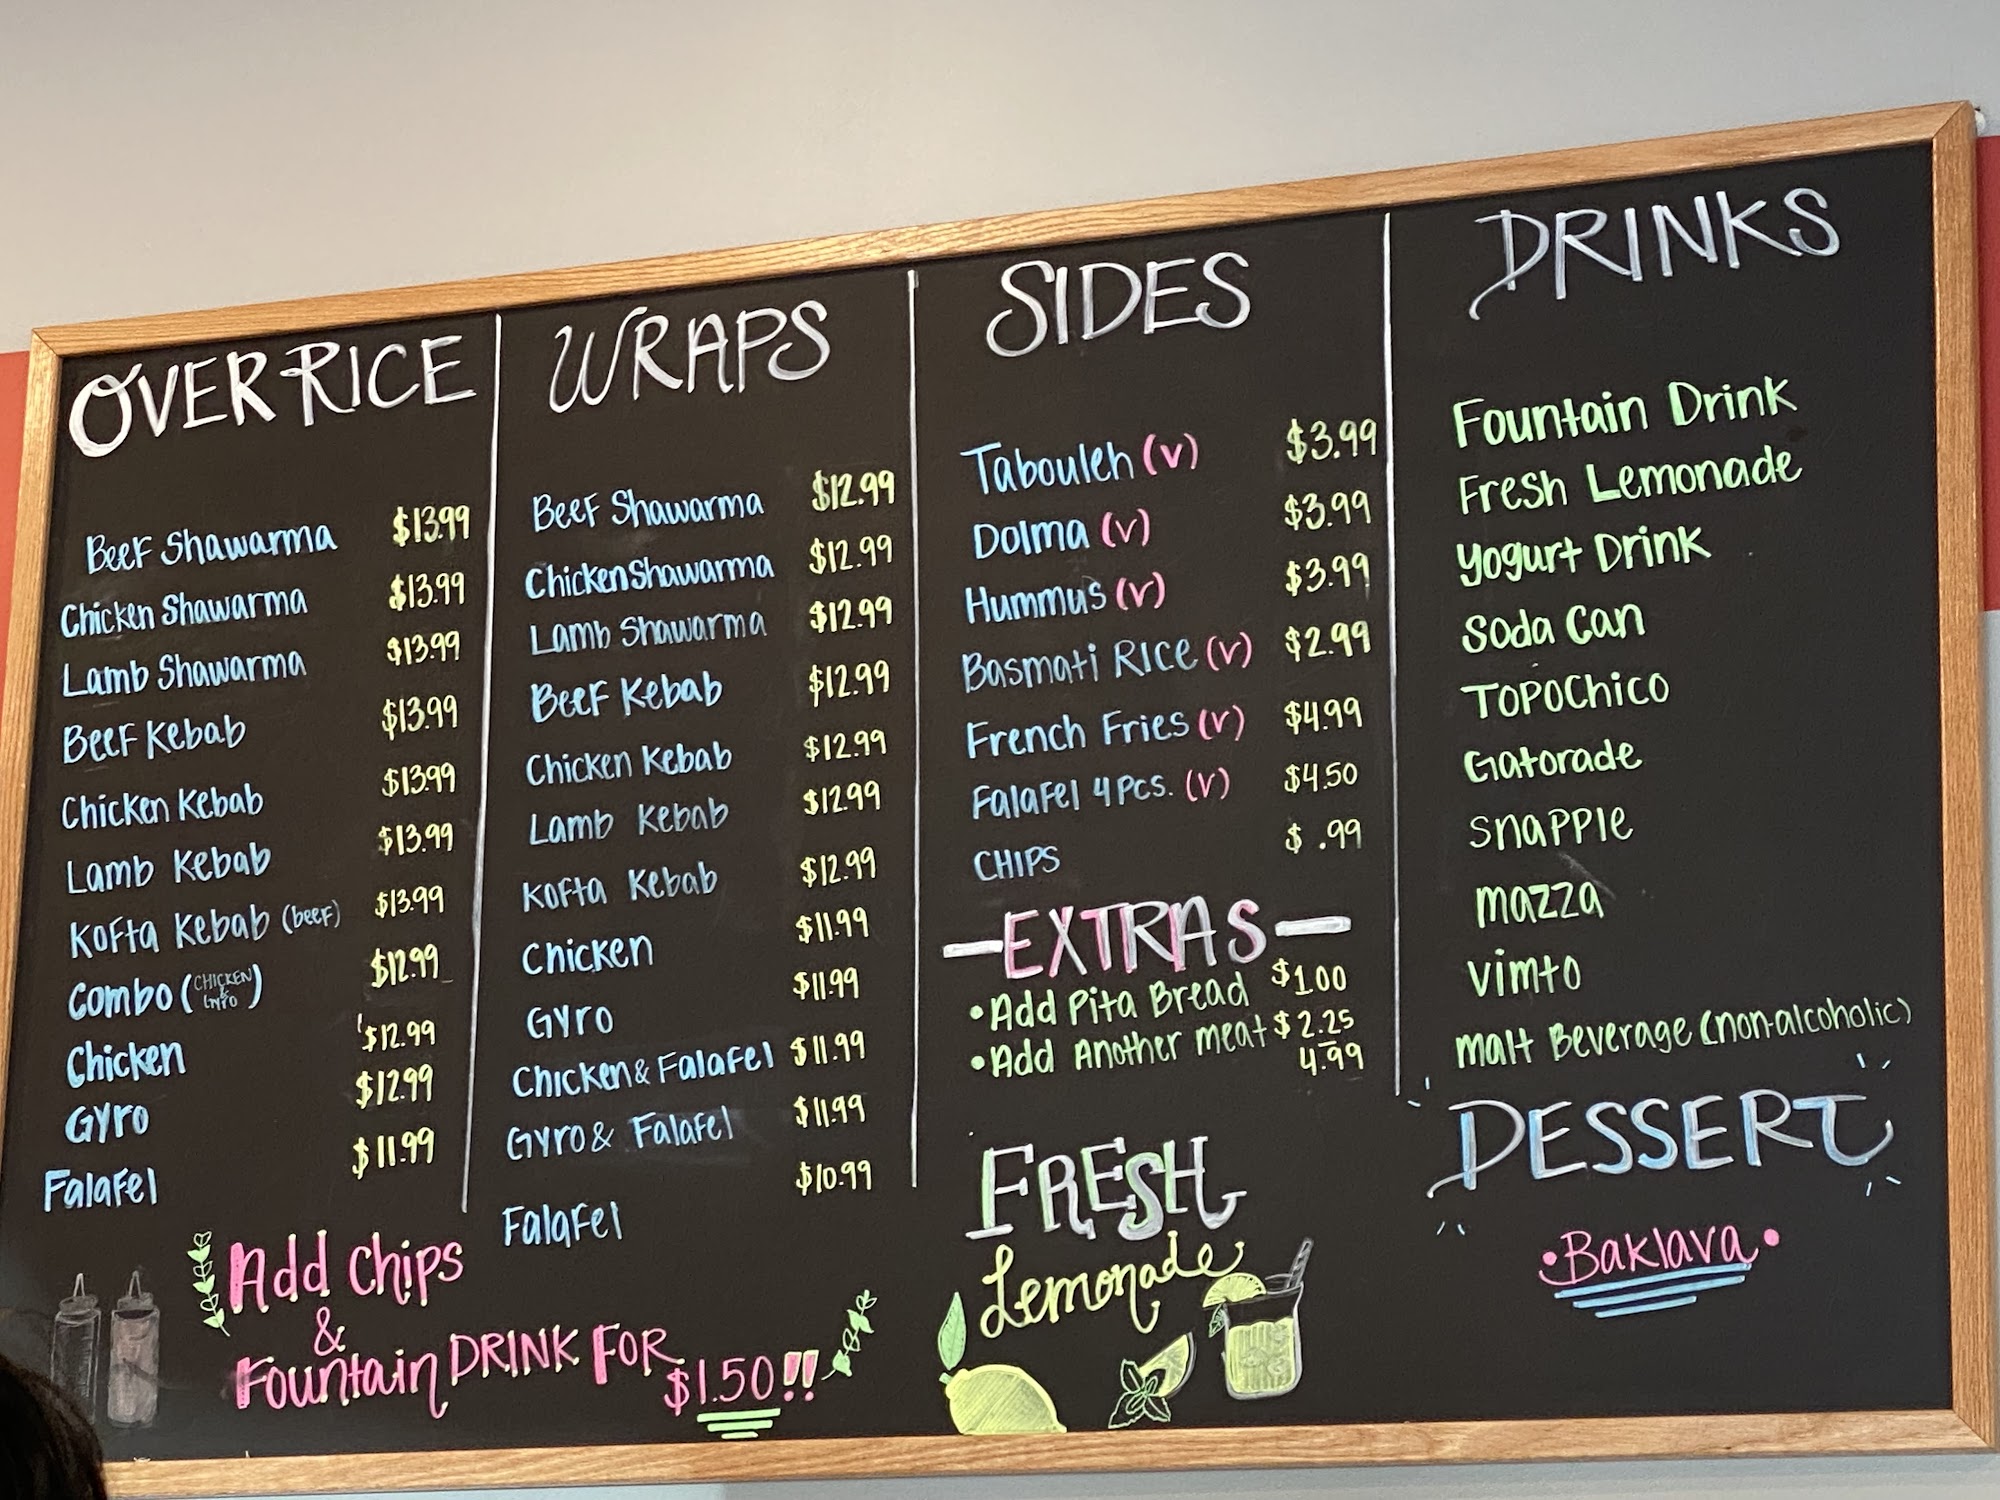 OVER RICE
Beef Shawarma $13.99
Chicken Shawarma $13.99
Lamb Shawarma $13.99
Beef Kebab $13.99
Chicken Kebab $13.99
Lamb Kebab $13.99
Kofta Kebab (beef) $13.99
Combo (CHICKEN & GYRO) $12.99
Chicken $12.99
Gyro $12.99
Falafel $11.99
WRAPS
Beef Shawarma $12.99
Chicken Shawarma $12.99
Lamb Shawarma $12.99
Beef Kebab $12.99
Chicken Kebab $12.99
Lamb Kebab $12.99
Kofta Kebab $12.99
Chicken $11.99
Gyro $11.99
Chicken & Falafel $11.99
Gyro & Falafel $11.99
Falafel $10.99
Add Chips
&
Fountain DRINK FOR
$1.50!!
SIDES
Tabouleh (v) $3.99
Dolma (v) $3.99
Hummus (v) $3.99
Basmati Rice (v) $2.99
French Fries (v) $4.99
Falafel 4pcs. (v) $4.50
CHIPS $ .99
-EXTRAS-
• Add Pita Bread $1.00
• Add Another meat $2.25
4.99
FRESH
Lemonade
DRINKS
Fountain Drink
Fresh Lemonade
Yogurt Drink
Soda Can
TOPOCHICO
Gatorade
Snapple
Mazza
Vimto
Malt Beverage (non-alcoholic)
DESSERT
•Baklava•